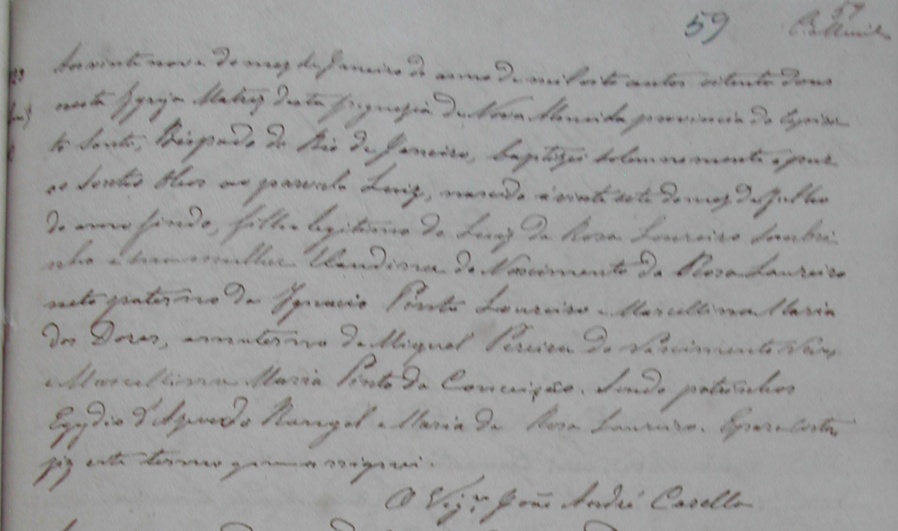 59
59
Aos vinte nove do mez de Janeiro do anno de mil oito centos oitenta dous
nesta Igreja Matriz desta freguezia de Nova Almeida provincia do Espiri-
to Santo, Bispado do Rio de Janeiro, baptizei solemnemente e puz
os Santos Oleos ao parvulo Luiz, nascido á vinte sete do mez de Julho
do anno findo, filho legitimo de Luiz da Rosa Loureiro Sombri-
nho e sua mulher Claudina do Nascimento da Rosa Loureiro
neto paterno de Ignacio Pinto Loureiro e Marcellina Maria
das Dores, e materno de Miguel Pereira do Nascimento
e Marcellina Maria Pinto da Conceição. Sendo padrinhos
Egydio d'Azevedo Rangel e Maria da Rosa Loureiro. E para constar
fiz este termo que assignei.
O Vigr.º João André Casella